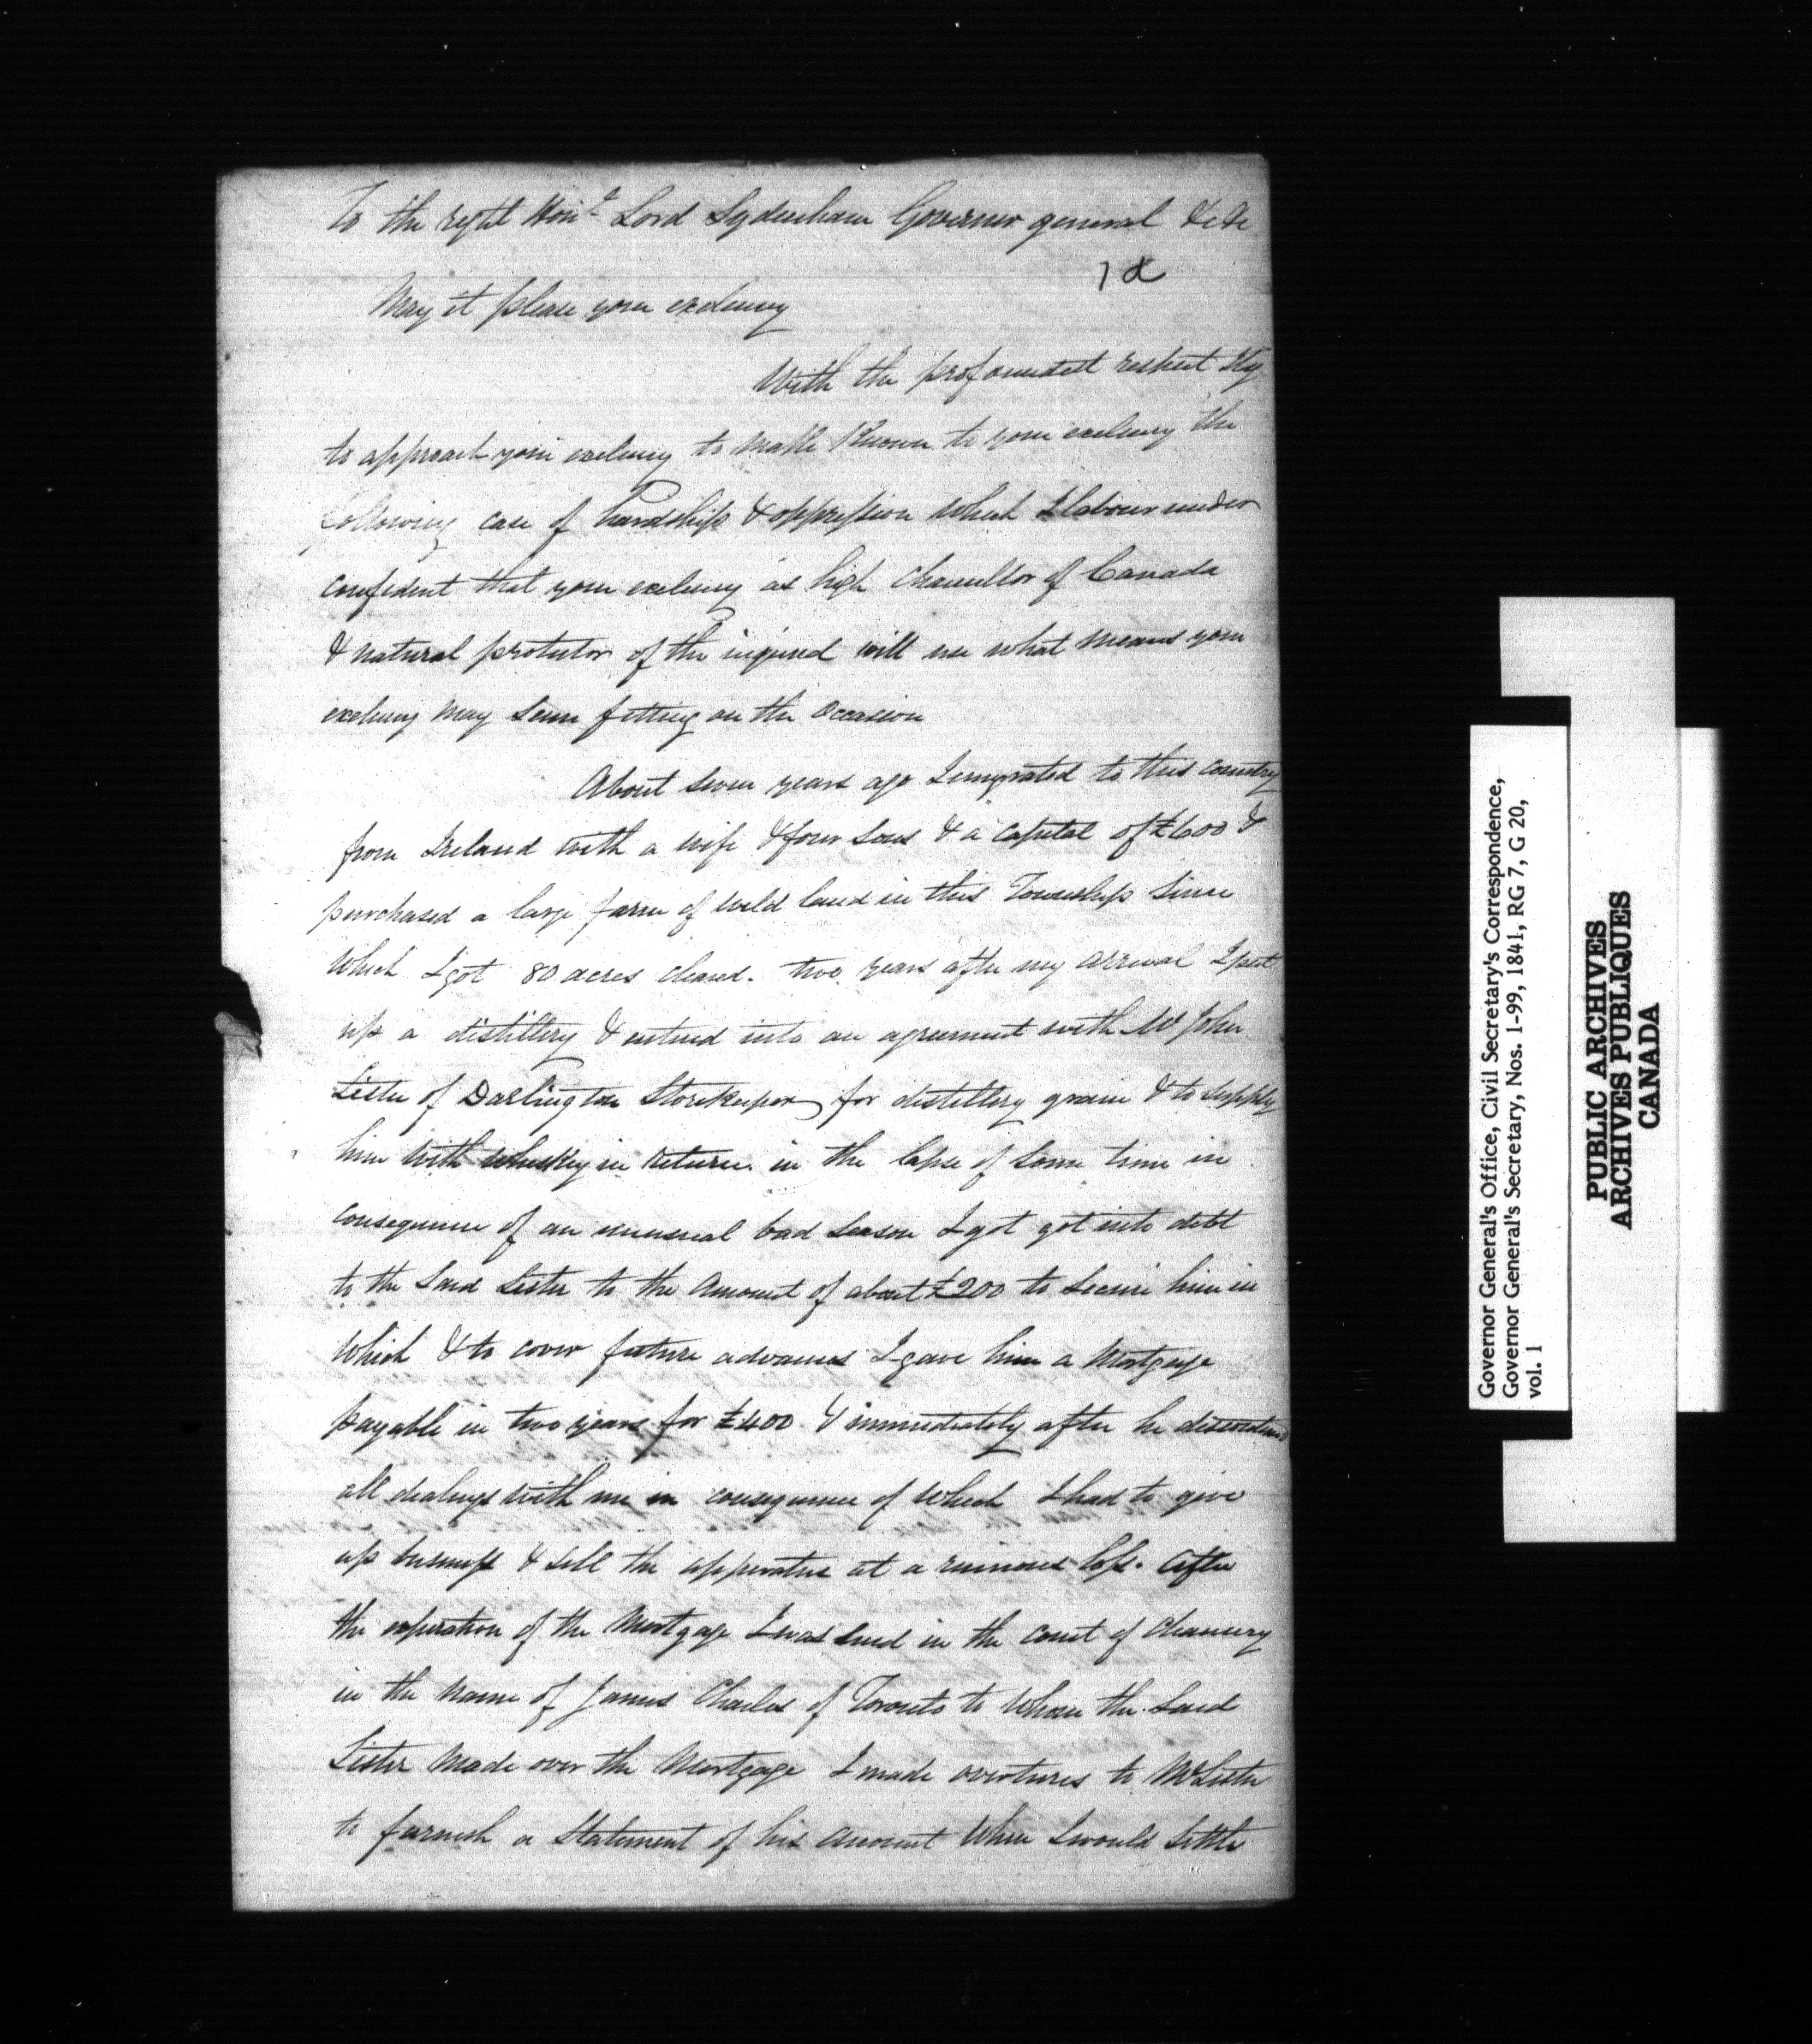 To the right Honl. Lord Sydenham Governor general &c &c
7 d
May it please your exelency
With the profoundest respect I beg
to approach your exelency to make known to your exelency the
following case of hardship & oppression which I labour under
confident that your exelency as high chancellor of Canada
& natural protector of the injured will use what means your
exelency may seem fitting on the occasion
About seven years ago I emigrated to this country
from Ireland with a wife & four sons & a capital of £600 &
purchased a large farm of wild land in this Township since
which I got 80 acres cleared. two years after my arrival I put
up a distillery & entered into an agreement with Mr John
Lister of Darlington Storekeeper for distillery grain & to supply
him with whiskey in return. in the lapse of some time in
consequence of an unusual bad season I got got into debt
to the said Lister to the amount of about £200 to secure him in
which & to cover future advances I gave him a Mortgage
payable in two years for £400 & immediately after he
all dealings with me in consequence of which I had to give
up business & sell the apperatus at a ruinous loss. after
the expiration of the Mortgage I was sued in the court of Chancery
in the name of James Charles of Toronto to whom the said
Lister made over the Mortgage I made overtures to Mr Lister
to furnish a statement of his account when I would settle
Governor General's Office, Civil Secretary's Correspondence,
Governor General's Secretary, Nos. 1-99, 1841, RG 7, G 20,
vol. 1
PUBLIC ARCHIVES
ARCHIVES PUBLIQUES
CANADA